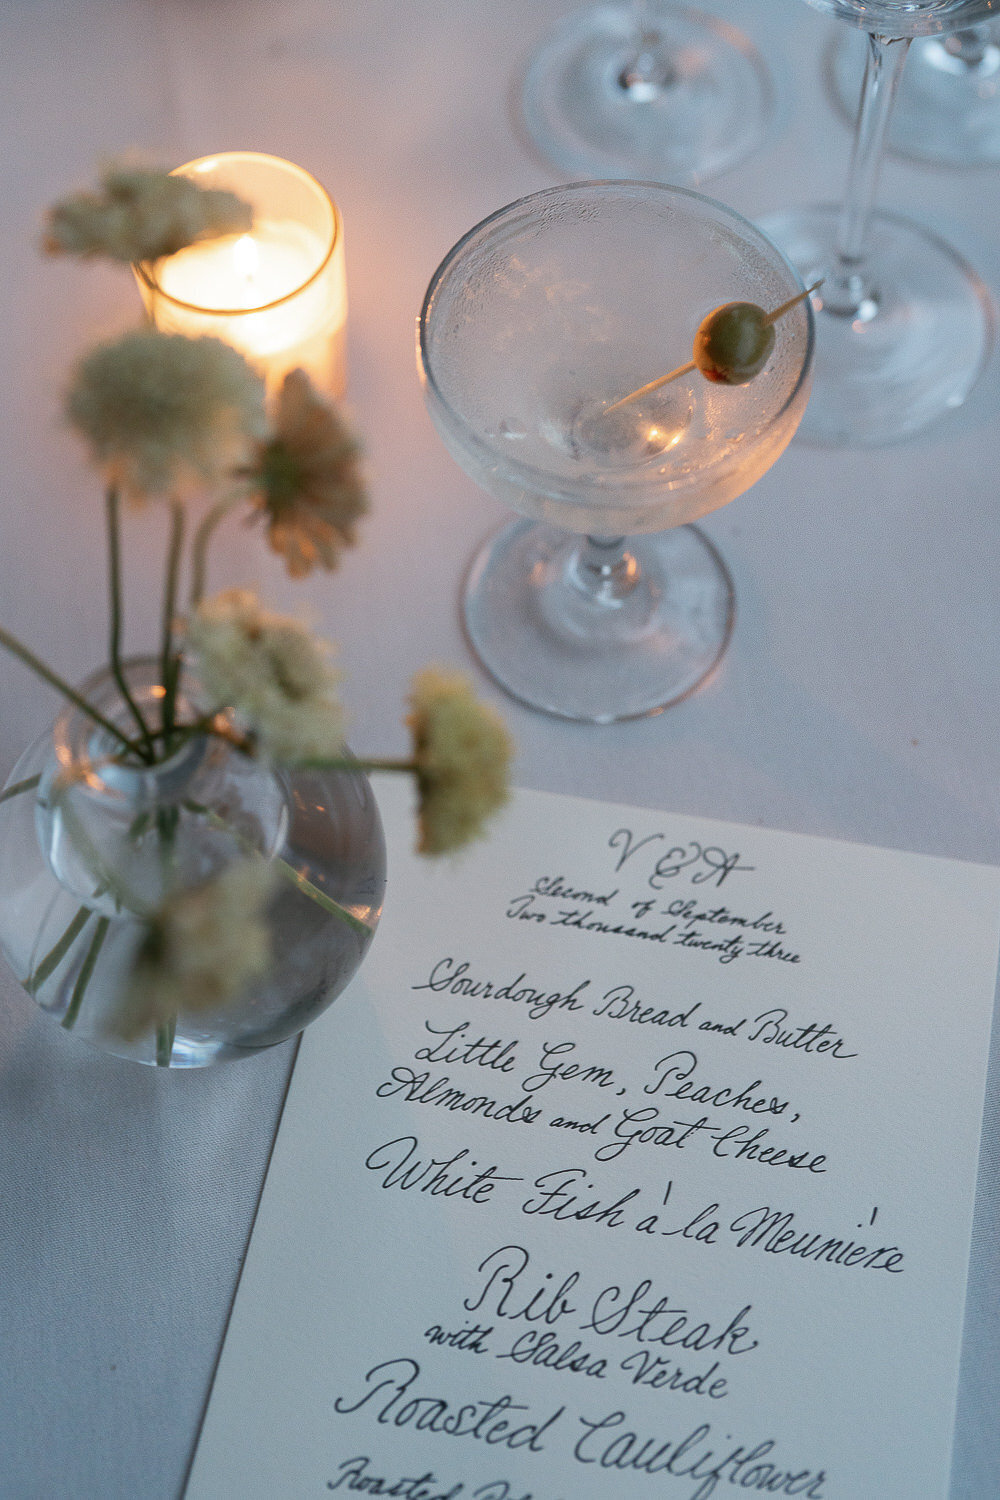 V & A
Second of September
Two thousand twenty three
Sourdough Bread and Butter
Little Gem, Peaches,
Almonds and Goat Cheese
White Fish à la Meunière
Rib Steak
with Salsa Verde
Roasted Cauliflower
Roasted